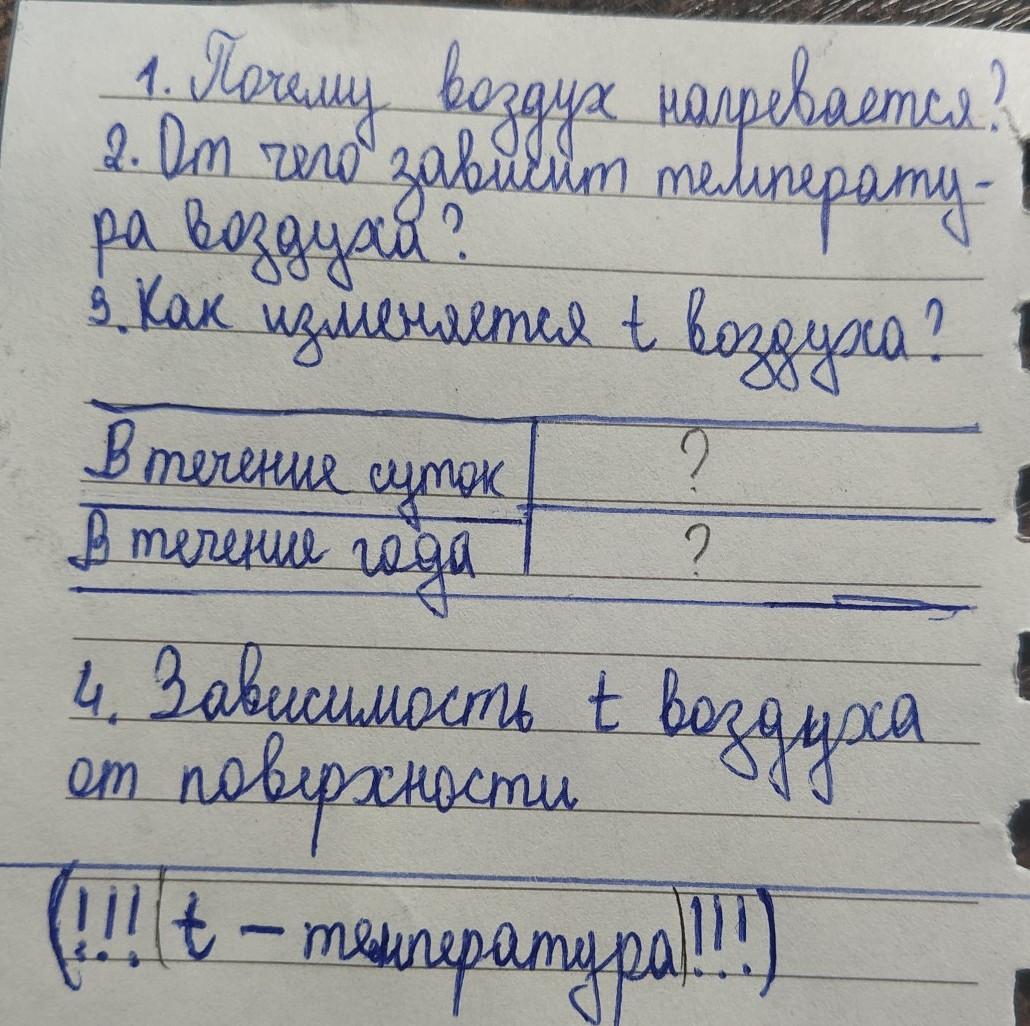 1. Почему воздух нагревается?
2. От чего зависит температу-
ра воздуха?
3. Как изменяется t воздуха?
В течение суток ?
В течение года ?
4. Зависимость t воздуха
от поверхности
(!!!(t - температура)!!!)